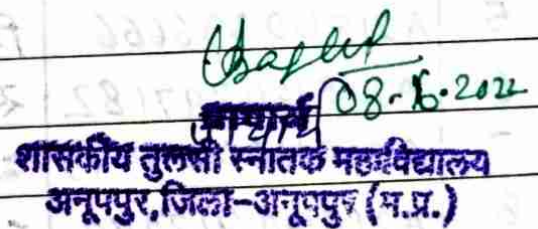 08-16-2022
प्राचार्य
शासकीय तुलसी स्नातक महाविद्यालय
अनूपपुर,जिला-अनूपपुर (म.प्र.)